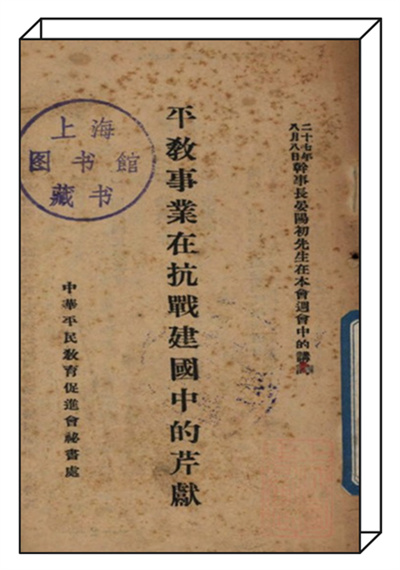 二十七年
八月八日
幹事長晏陽初先生在本會週會中的講
平敎事業在抗戰建國中的芹獻
中華平民敎育促進會祕書處
上海
图书馆
藏书